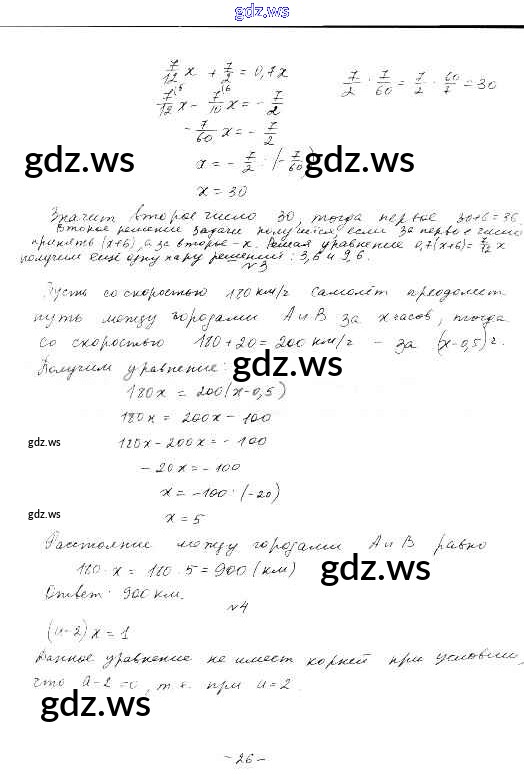 gdz.ws
7/12 x + 7/2 = 0,7x
7/2 · 7/60 = 7/2 · 60/7 = 30
7/12 x - 7/10 x = - 7/2
- 7/60 x = - 7/2
x = - 7/2 : (- 7/60)
gdz.ws gdz.ws
x = 30
Значит второе число 30, тогда первое 30+6=36.
Второе решение задачи получится, если за первое число
принять (x+6), а за второе - x. Решая уравнение 0,7(x+6) = 7/12 x
получим ещё одну пару решений: 3,6 и 9,6.
№3
Пусть со скоростью 180 км/ч самолёт преодолеет
путь между городами A и B за x часов, тогда
со скоростью 180+20=200 км/ч - за (x-0,5) ч.
Получим уравнение:
gdz.ws
180x = 200(x-0,5)
180x = 200x - 100
gdz.ws
180x - 200x = - 100
- 20x = - 100
x = -100 : (-20)
gdz.ws
x = 5
Расстояние между городами A и B равно
180 · x = 180 · 5 = 900 (км)
gdz.ws
Ответ: 900 км.
№4
(a-2)x = 1
Данное уравнение не имеет корней при условии,
что a-2=0, т.е. при a=2.
gdz.ws
- 26 -